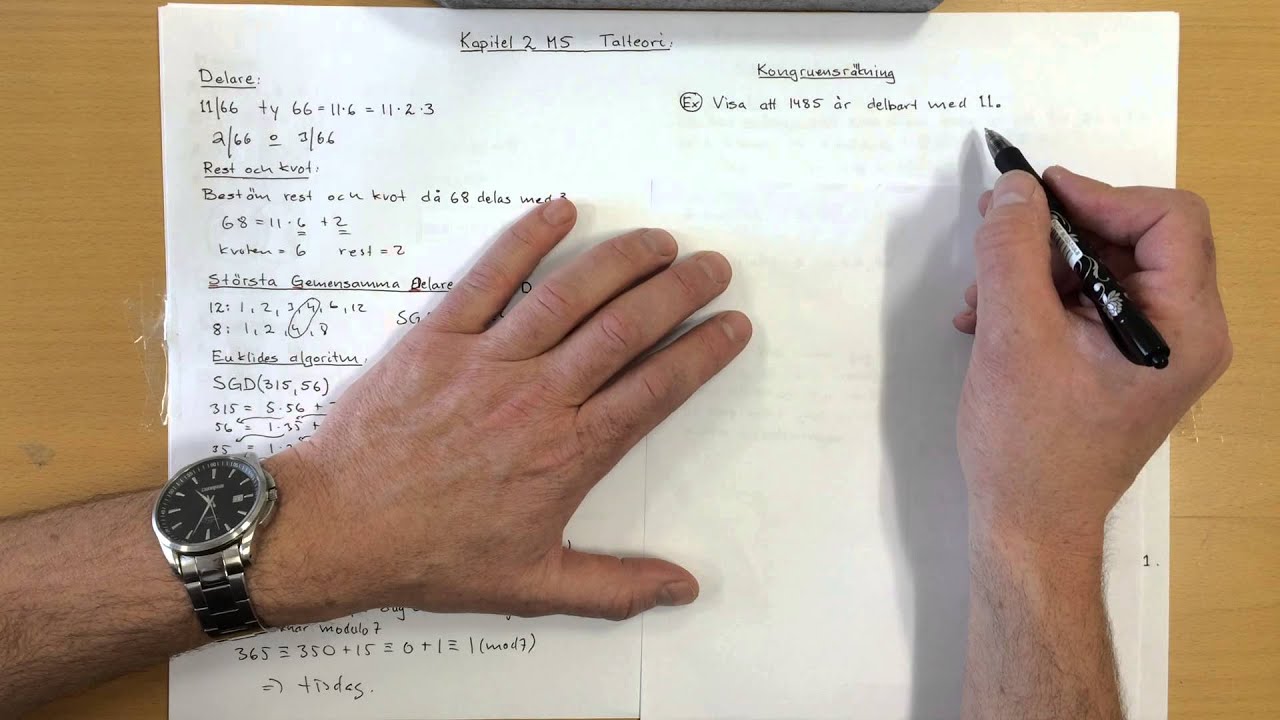 Kapitel 2 M5 Talteori:
Delare:
11/66 ty 66 = 11·6 = 11·2·3
2/66 o 3/66
Rest och kvot:
Bestäm rest och kvot då 68 delas med
68 = 11·6 + 2
kvoten = 6 rest = 2
Största Gemensamma Delare D
12: 1, 2, 3, 4, 6, 12
8: 1, 2, 4, 8
Euklides algoritm:
SGD(315, 56)
315 = 5·56 +
56 = 1·35 +
35 = 1·
modulo 7
365 ≡ 350 + 15 ≡ 0 + 1 ≡ 1 (mod 7)
=> tisdag.
Kongruensräkning
Ex Visa att 1485 är delbart med 11.
1.